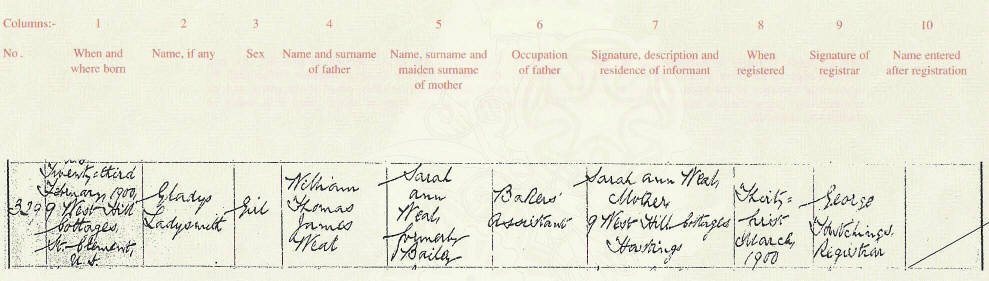 Columns:- 1 2 3 4 5 6 7 8 9 10
No. When and where born Name, if any Sex Name and surname of father Name, surname and maiden surname of mother Occupation of father Signature, description and residence of informant When registered Signature of registrar Name entered after registration
329
Twenty=third
February 1900,
9 West Hill
Cottages,
St Clement,
Gladys
Ladysmith
Girl
William
Thomas
James
Neal
Sarah
ann
Neal,
formerly
Bailey
Bakers'
assistant
Sarah ann Neal,
Mother
9 West Hill Cottages
Hastings
Thirty=
first
March,
1900
George
Hutchings,
Registrar